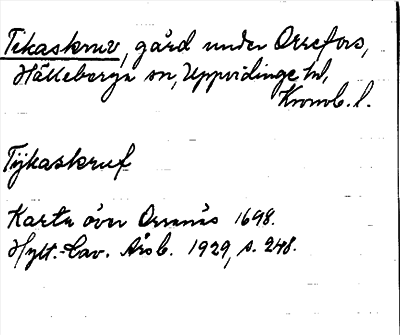 Tikaskruv, gård under Orrefors,
Hälleberga sn, Uppvidinge hd,
Kronob. l.
Tijkaskruf
Karta över Orranäs 1698.
Hylt.-Cav. Årsb. 1929, s. 248.